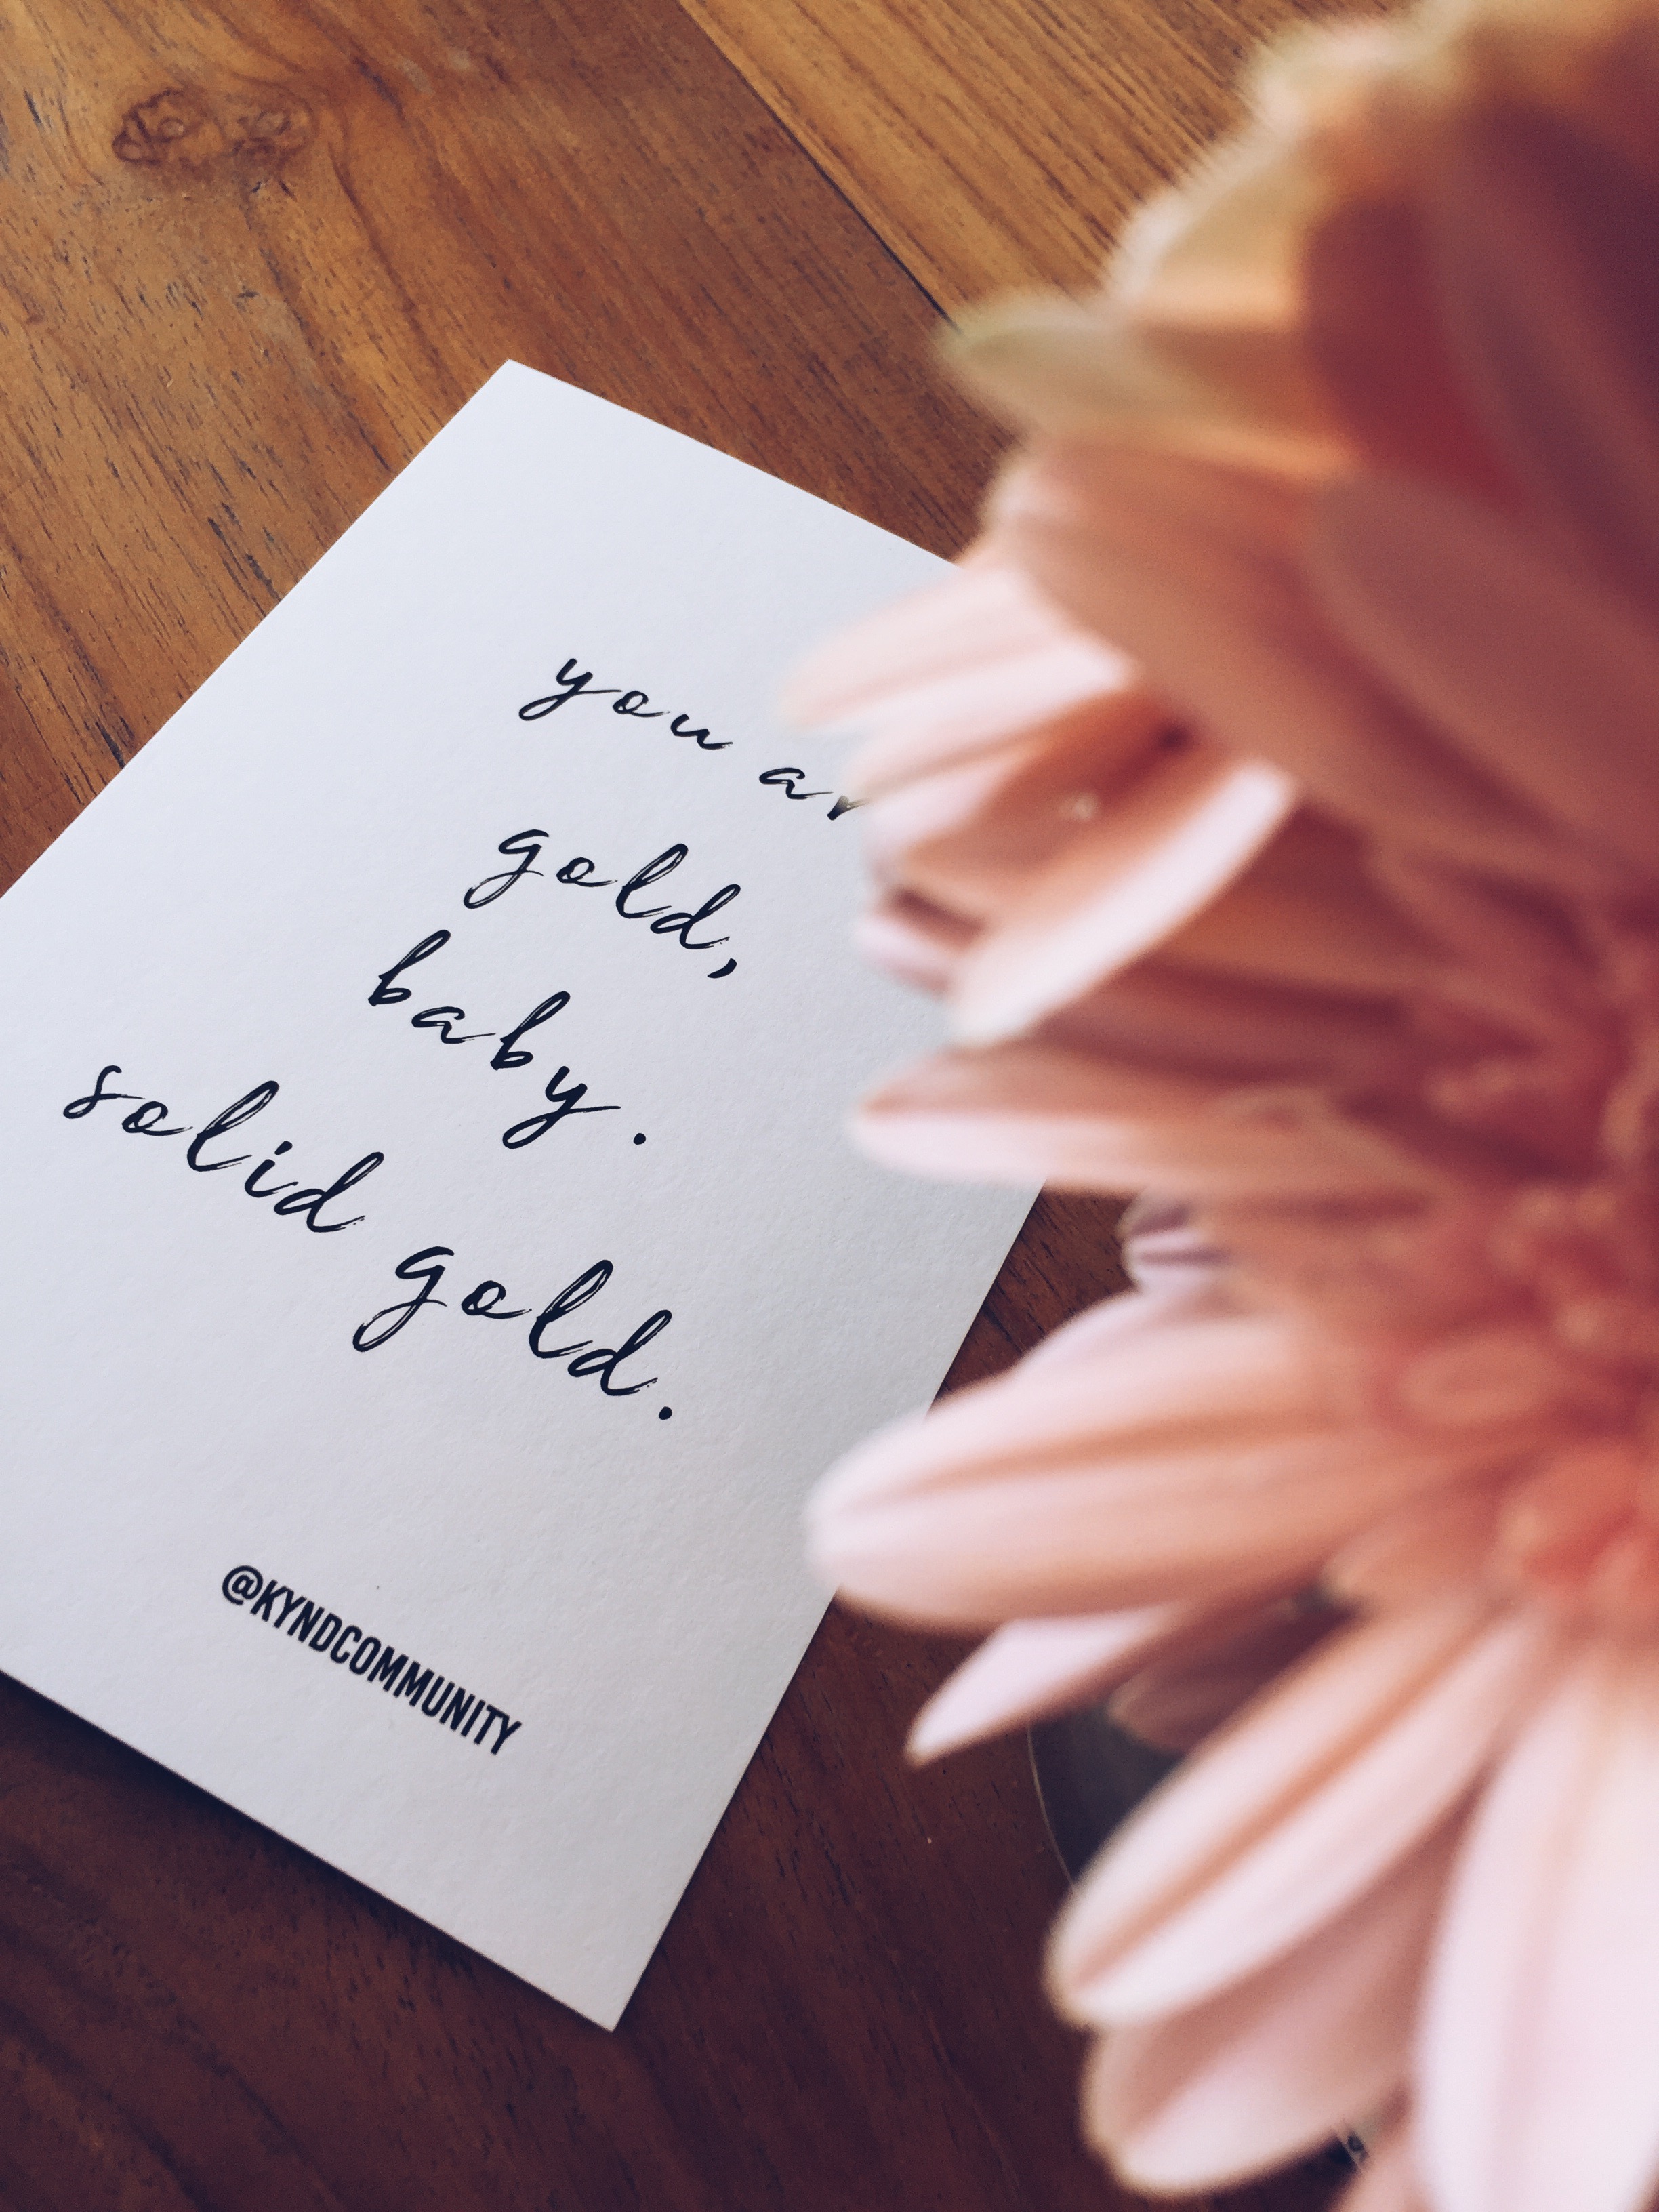 you ar
gold,
baby.
solid gold.
@KYNDCOMMUNITY